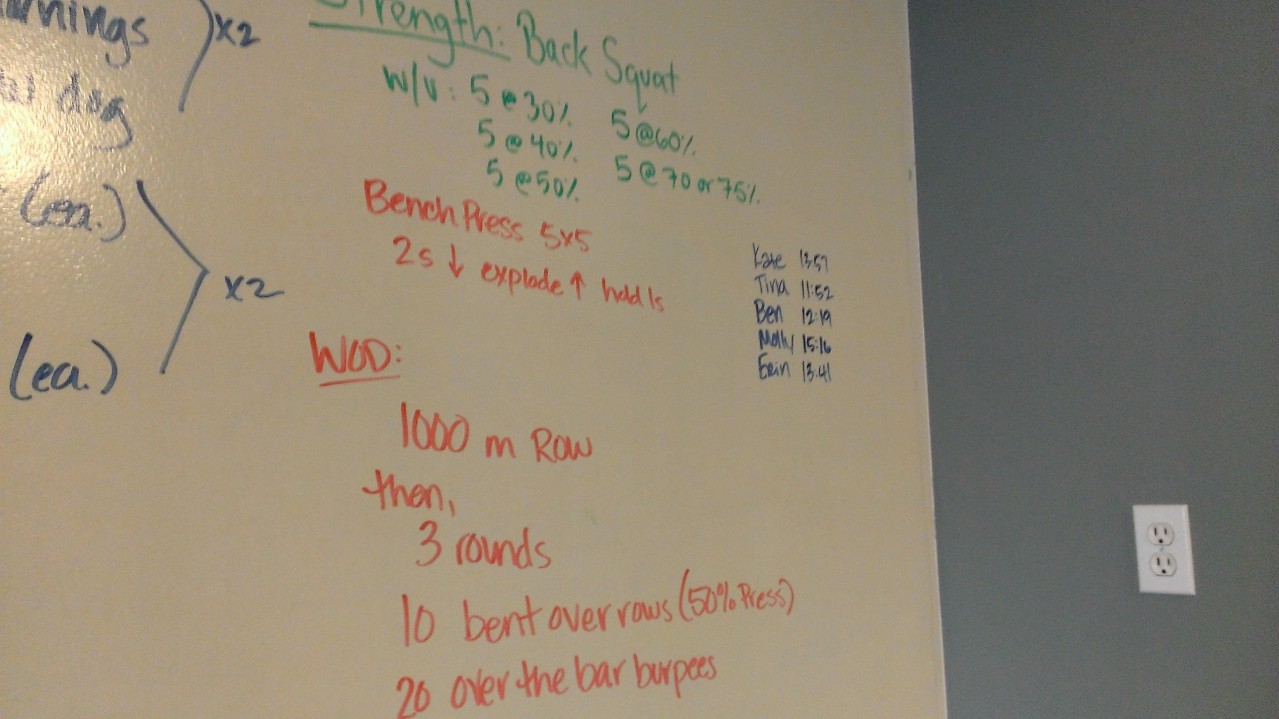 x2
dog
(ea.)
x2
(ea.)
Strength: Back Squat
W/U: 5 @ 30% 5 @ 60%
5 @ 40% 5 @ 70 or 75%
5 @ 50%
Bench Press 5x5
2s ↓ explode ↑ hold 1s
Kate 13:57
Tina 11:52
Ben 12:19
Molly 15:16
Erin 13:41
WOD:
1000 m Row
then,
3 rounds
10 bent over rows (50% Press)
20 over the bar burpees